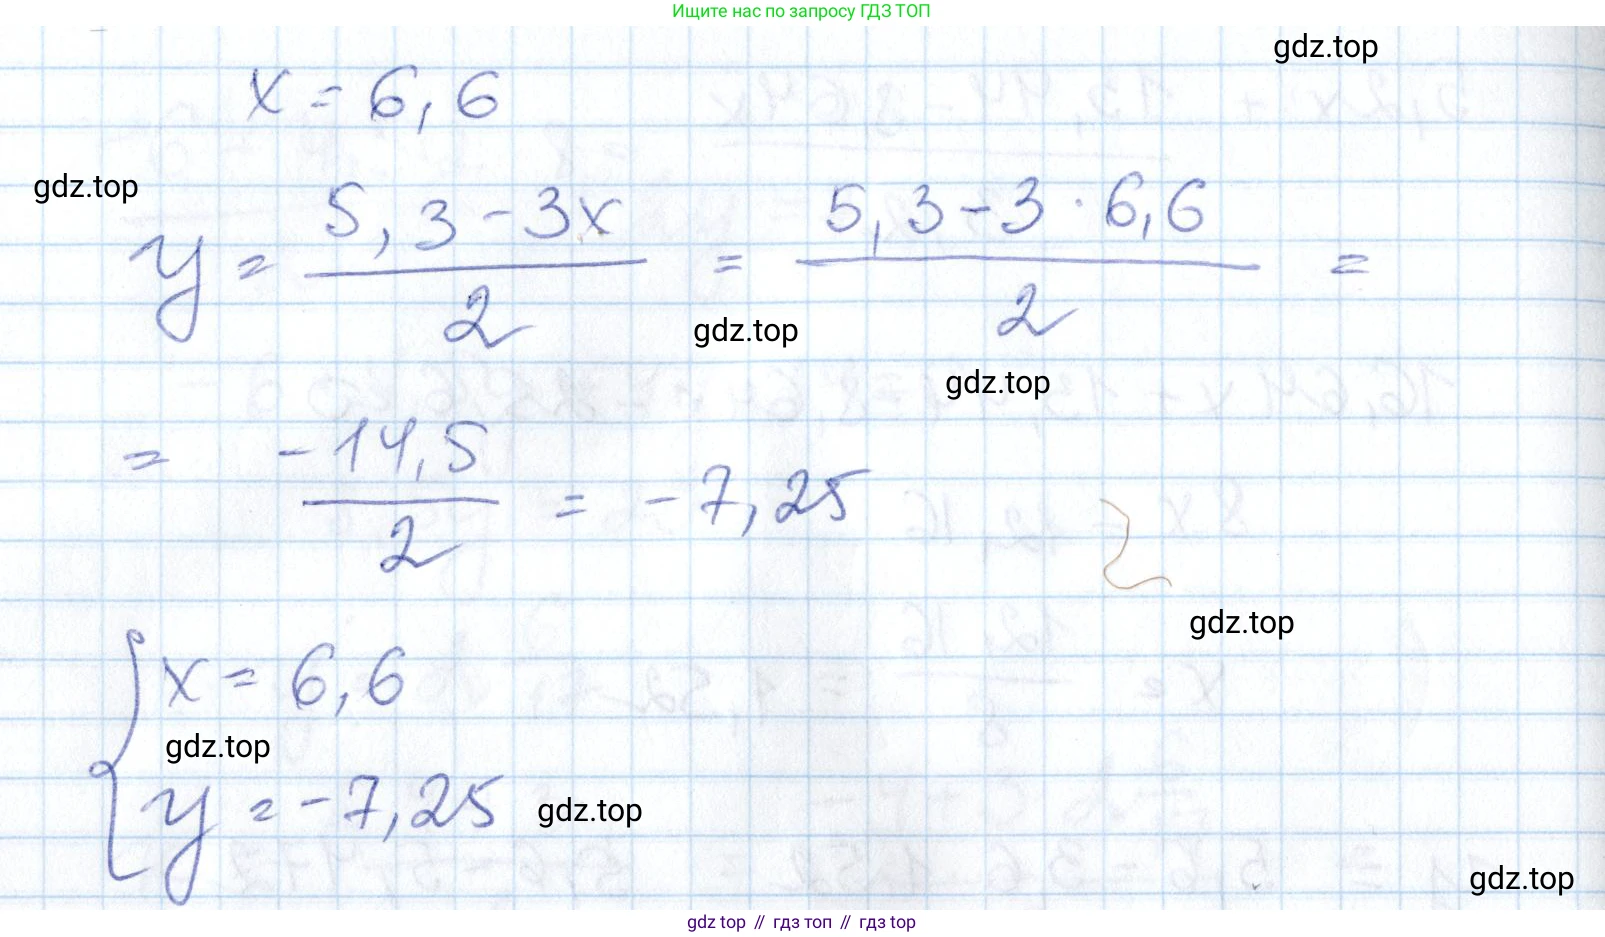 Ищите нас по запросу ГДЗ ТОП
gdz.top
x = 6,6
gdz.top
y = (5,3 - 3x)/2 = (5,3 - 3 · 6,6)/2 =
gdz.top
gdz.top
= (-14,5)/2 = -7,25
gdz.top
{ x = 6,6
gdz.top
y = -7,25
gdz.top
gdz.top
gdz top // гдз топ // гдз top